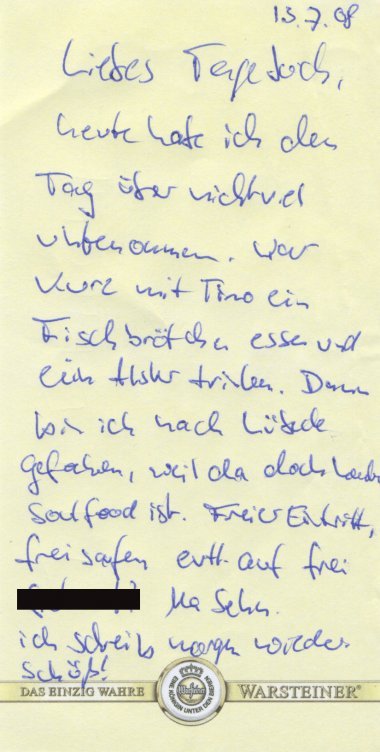 13.7.08
Liebes Tagebuch,
heute habe ich den
Tag über nicht viel
unternommen. War
kurz mit Timo ein
Fischbrötchen essen und
ein Alster trinken. Dann
bin ich nach Lübeck
gefahren, weil da doch
Soulfood ist. Freier Eintritt,
frei saufen evtl. auf frei
Ma Sehn.
ich schreib morgen wieder
Schöß!
DAS EINZIG WAHRE WARSTEINER®
EINE KÖNIGIN UNTER DEN BIEREN
Warsteiner